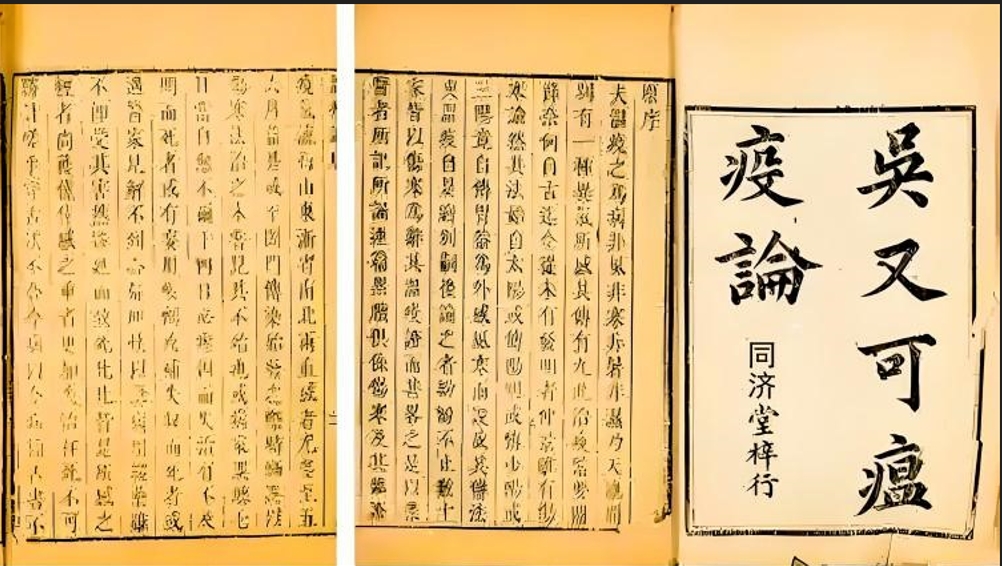 吳又可瘟
疫論
同济堂梓行
原序
夫溫疫之為病非風非寒非暑非濕乃天地間
別有一種異氣所感其傳有九此治疫緊要關
節奈何自古迄今從未有發明者仲景雖有傷
寒論然其法始自太陽或傳陽明或傳少陽或
三陽竟自傳胃蓋為外感風寒而設故其傳法
與溫疫自是迥別嗣後論之者紛紛不止數十
家皆以傷寒為辭其溫疫證而甚畧之是以業
醫者所記所誦連篇累牘俱係傷寒及其臨證
疫氣流行山東浙省南北兩直感者尤多至五
六月益甚或至闔門傳染始發之際時師誤以
傷寒法治之未嘗見其不殆也或病家誤聽七
日當自愈不爾十四日必瘳因而失治有不及
期而死者或有妄用峻劑攻補失叙而死者或
遇醫家見解不到心疑胆怯以急病用緩藥雖
不即受其害然遷延而致死比比皆是所感之
輕者尚獲僥倖感之重者更加失治枉死不可
勝計嗟乎守古法不合今病以今病簡古書不